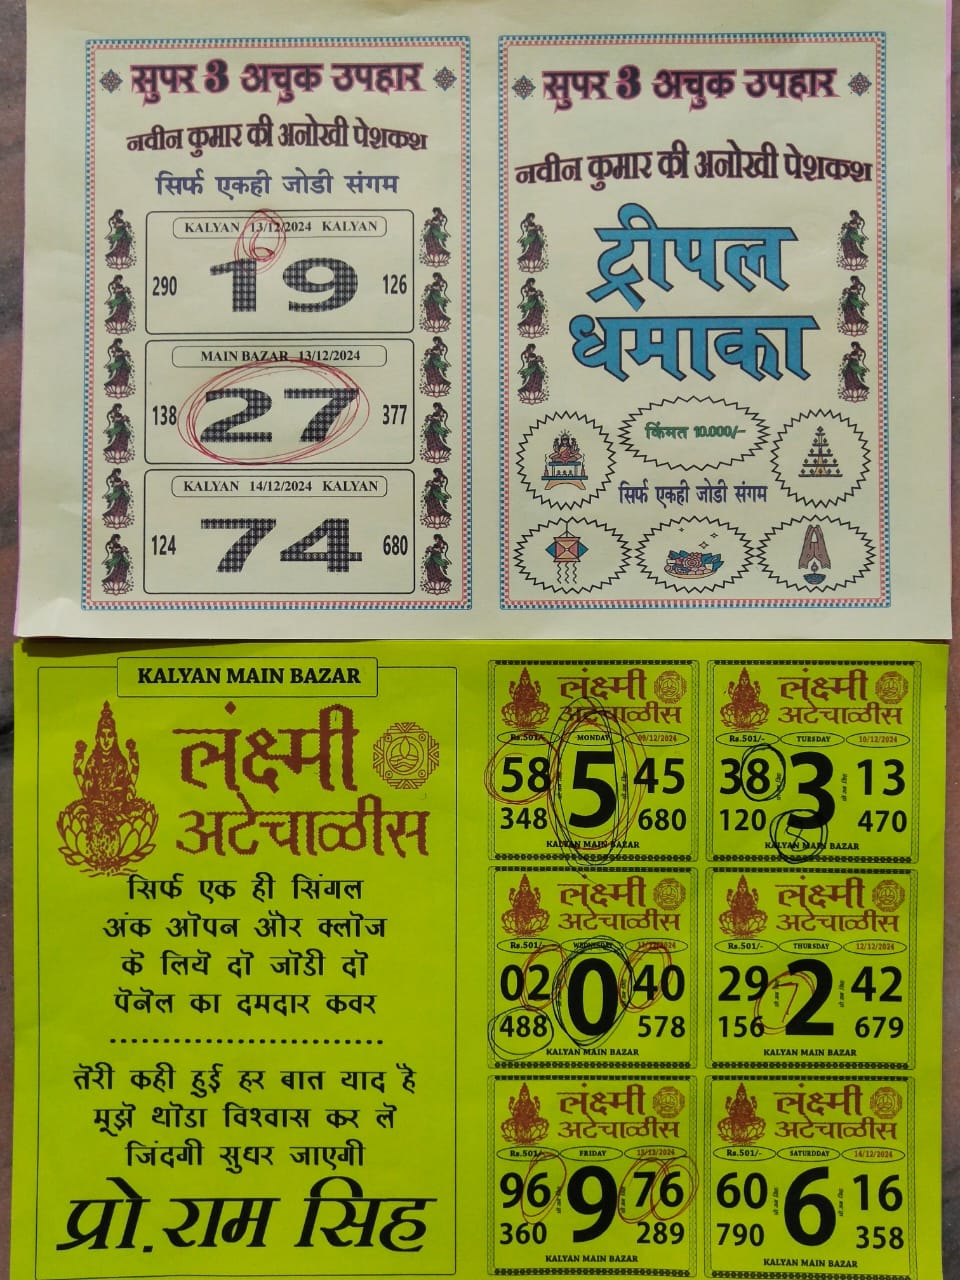 सुपर 3 अचुक उपहार
नवीन कुमार की अनोखी पेशकश
सिर्फ एकही जोडी संगम
KALYAN 13/12/2024 KALYAN
6
290 19 126
MAIN BAZAR 13/12/2024
138 27 377
KALYAN 14/12/2024 KALYAN
124 74 680
सुपर 3 अचुक उपहार
नवीन कुमार की अनोखी पेशकश
ट्रीपल
धमाका
किंमत 10.000/-
सिर्फ एकही जोडी संगम
KALYAN MAIN BAZAR
लंक्ष्मी
अटेचाळीस
सिर्फ एक ही सिंगल
अंक ओपन और क्लोज
के लिये दो जोडी दो
पॅनेल का दमदार कवर
तेरी कही हुई हर बात याद है
मूझे थोडा विश्वास कर ले
जिंदगी सुधर जाएगी
प्रो. राम सिह
लंक्ष्मी
अटेचाळीस
Rs.501/- MONDAY 09/12/2024
58 5 45
348 680
KALYAN MAIN BAZAR
लंक्ष्मी
अटेचाळीस
Rs.501/- TUESDAY 10/12/2024
38 3 13
120 470
KALYAN MAIN BAZAR
लंक्ष्मी
अटेचाळीस
Rs.501/- WEDNESDAY 11/12/2024
02 0 40
488 578
KALYAN MAIN BAZAR
लंक्ष्मी
अटेचाळीस
Rs.501/- THURSDAY 12/12/2024
29 2 42
156 679
KALYAN MAIN BAZAR
लंक्ष्मी
अटेचाळीस
Rs.501/- FRIDAY 13/12/2024
96 9 76
360 289
KALYAN MAIN BAZAR
लंक्ष्मी
अटेचाळीस
Rs.501/- SATURDDAY 14/12/2024
60 6 16
790 358
KALYAN MAIN BAZAR